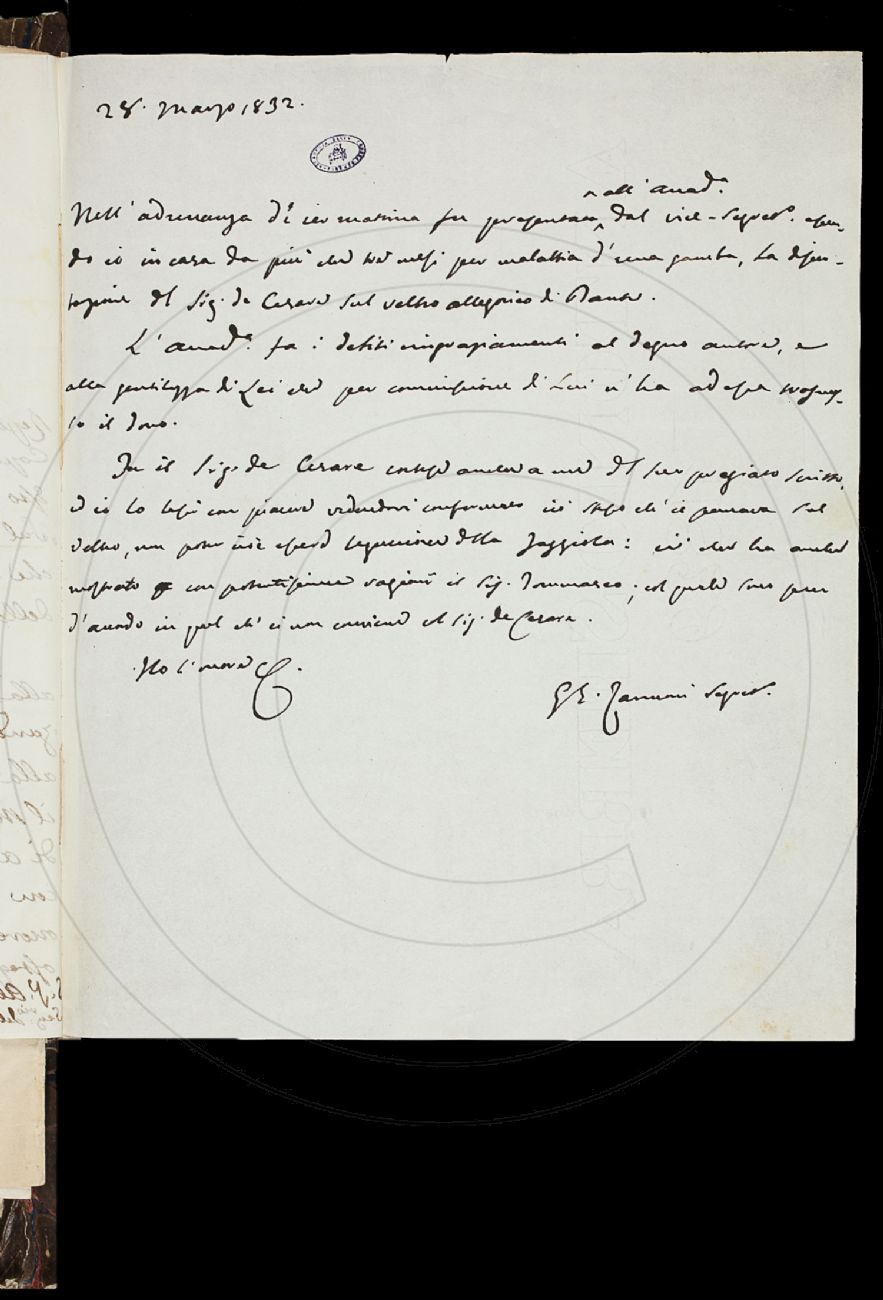 28. Marzo 1832.
all' Accad.ª
Nell' adunanza di ier mattina fu presentata dal vice-Segret.º essen-
do io in casa da più che tre mesi per malattia d'una gamba, la disser-
tazione del Sig. de Cesare sul veltro allegorico di Dante.
L' Accad.ª fa i debiti ringraziamenti al degno autore, e
alla gentilezza di Lei che per commissione di Lui n' ha ad essa trasmes-
so il dono.
Fu il Sig. de Cesare cortese ancora a me del suo pregiato scritto,
ed io lo lessi con piacere vedendovi confermato ciò ch' io pensava sul
Veltro, non poter cioè essere Uguccione della Faggiola: ciò che ha anche
mostrato con potentissime ragioni il Sig. Tommaseo; col quale sono pure
d'accordo in quel ch' ei non conviene col Sig. de Cesare.
Ho l'onore
G. B. Zannoni Segret.º